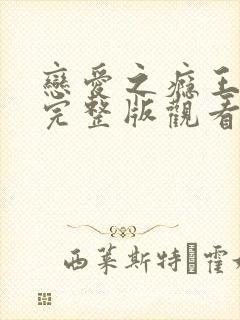 戀愛之癮王
完整版觀看
西萊斯特·霍